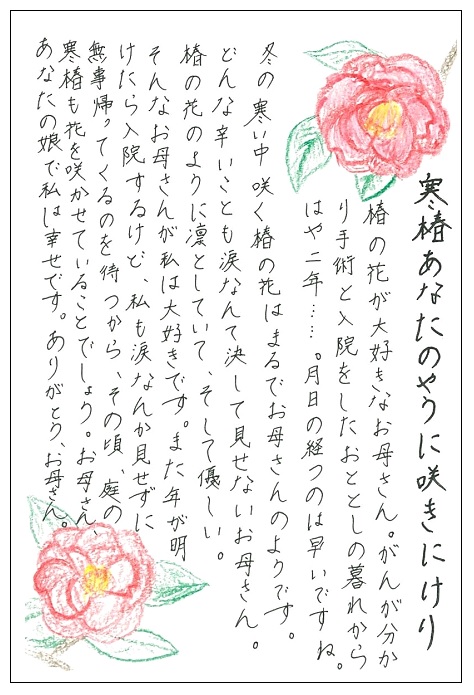 寒椿あなたのやうに咲きにけり
椿の花が大好きなお母さん。がんが分か
り手術と入院をしたおととしの暮れから
はや二年……。月日の経つのは早いですね。
冬の寒い中咲く椿の花はまるでお母さんのようです。
どんな辛いことも涙なんて決して見せないお母さん。
椿の花のように凛としていて、そして優しい。
そんなお母さんが私は大好きです。また年が明
けたら入院するけど、私も涙なんか見せずに
無事帰ってくるのを待つから、その頃、庭の
寒椿も花を咲かせていることでしょう。お母さん、
あなたの娘で私は幸せです。ありがとう、お母さん。